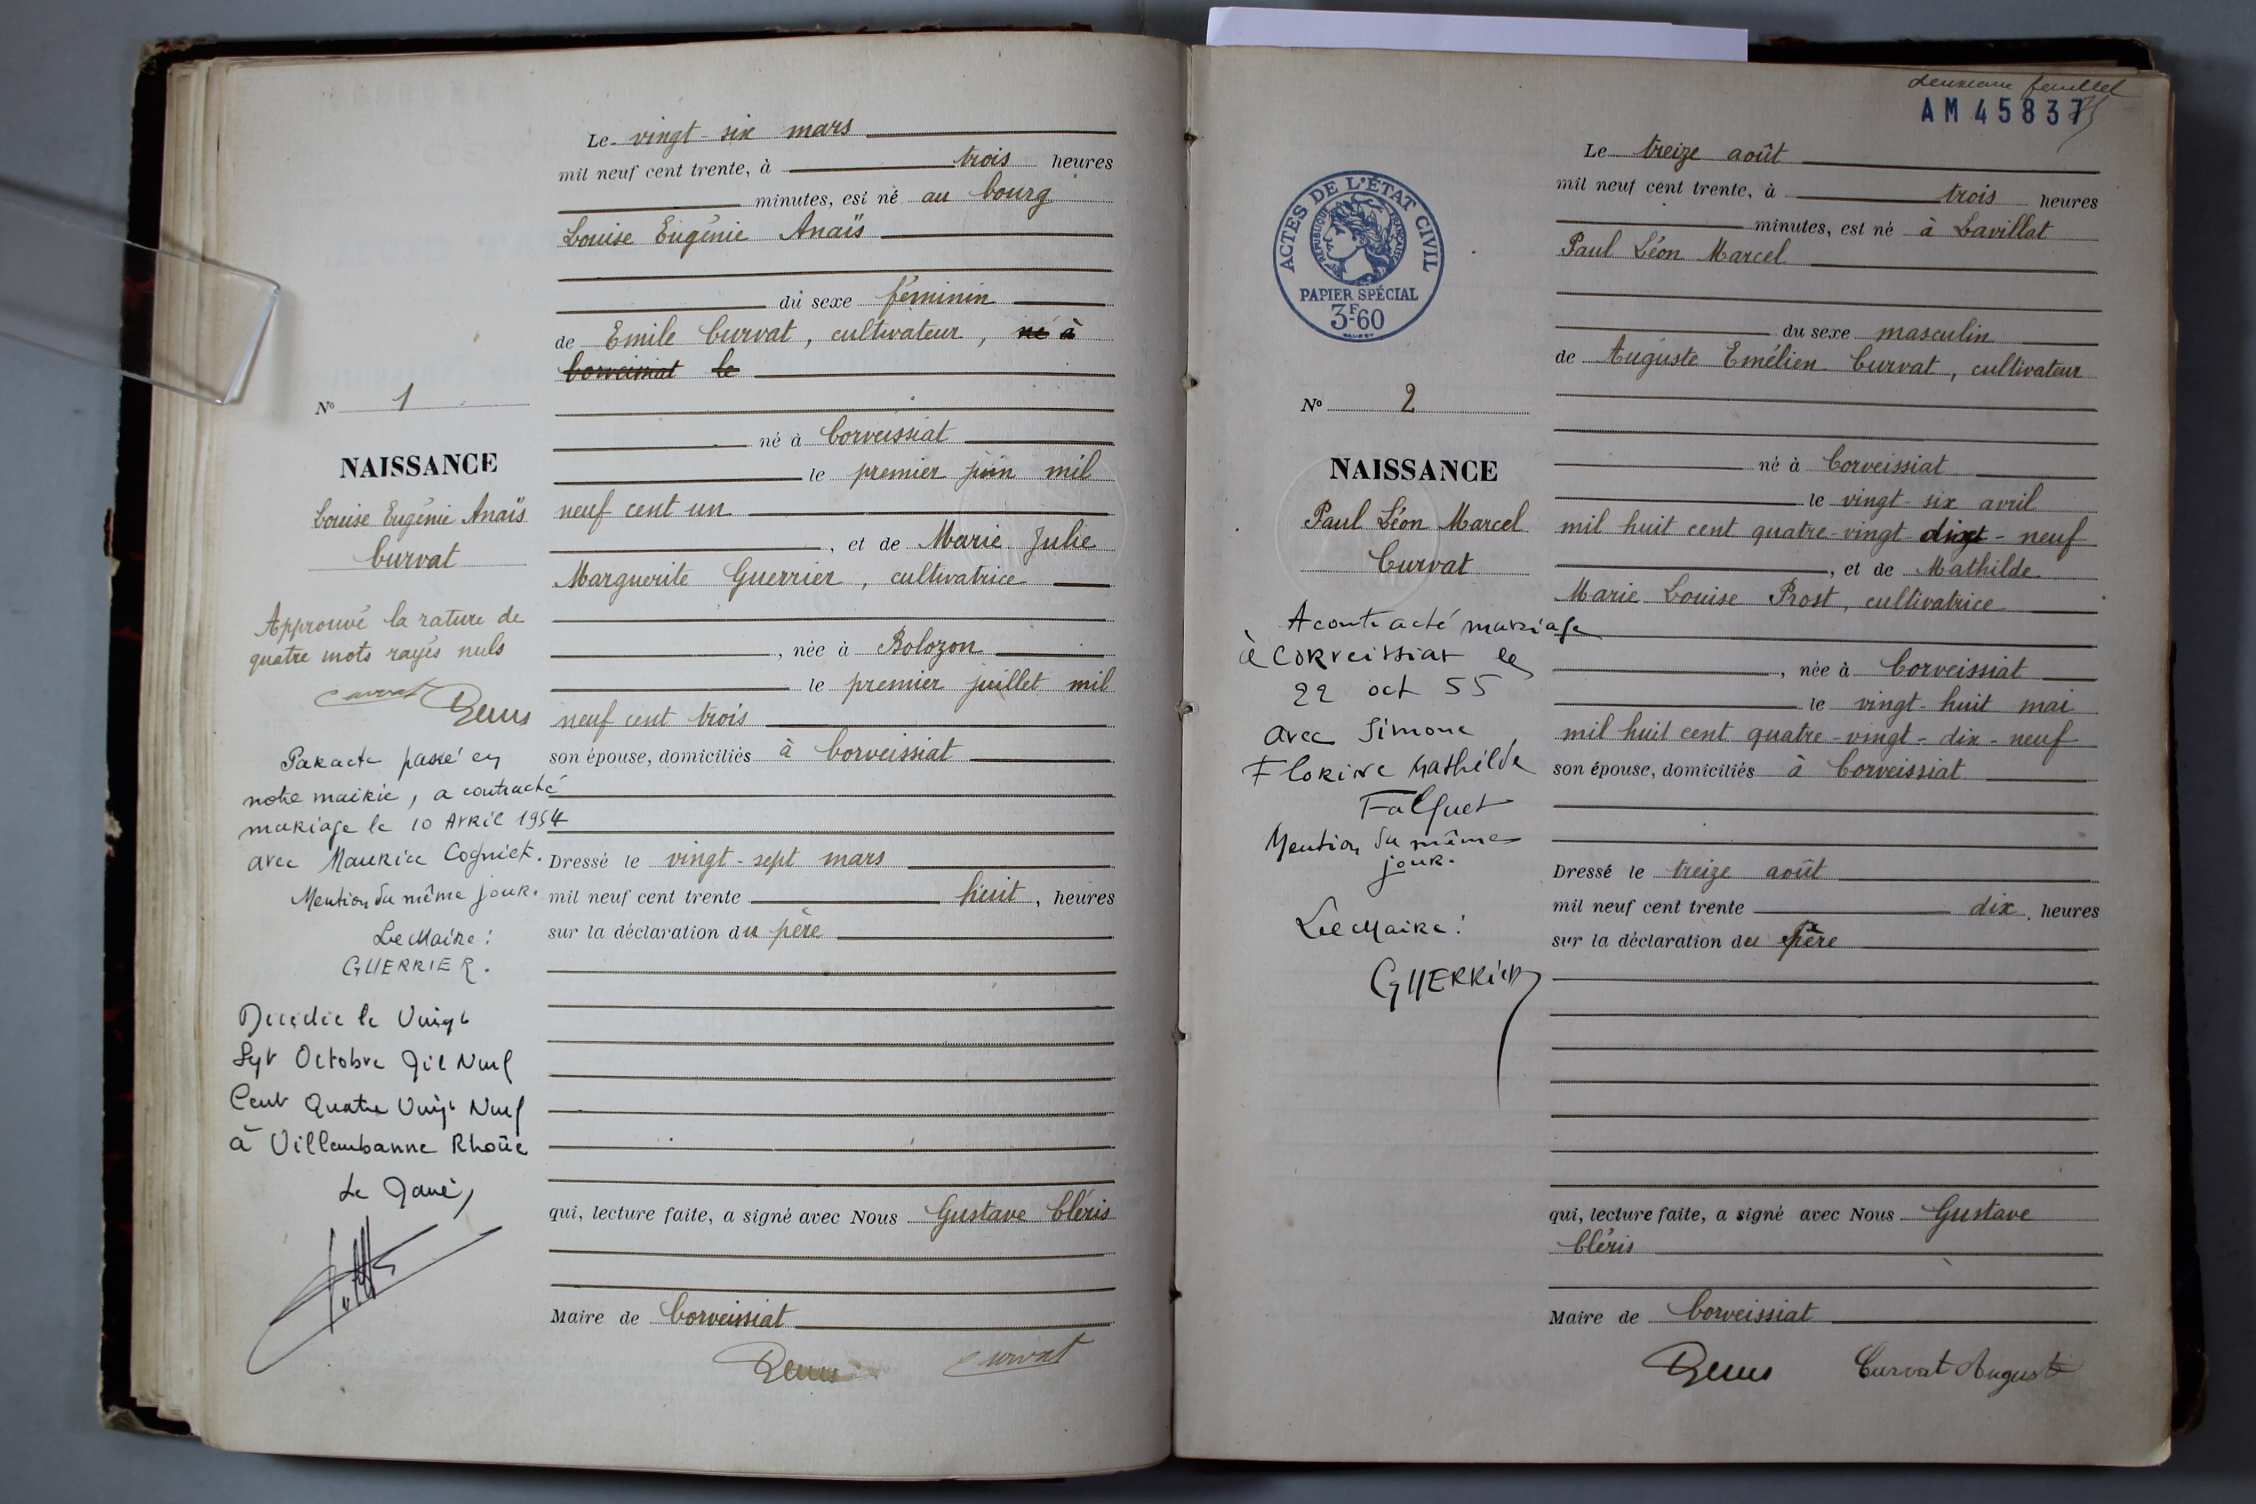 Le vingt-six mars
mil neuf cent trente, à trois heures
minutes, est né au bourg
Louise Eugénie Anaïs
du sexe féminin
de Emile Curvat, cultivateur, né à
le
né à Corveissiat
le premier juin mil
neuf cent un
, et de Marie Julie
Marguerite Guerrier, cultivatrice
, née à Bolozon
le premier juillet mil
neuf cent trois
son épouse, domiciliés à Corveissiat
Dressé le vingt-sept mars
mil neuf cent trente huit, heures
sur la déclaration du père
qui, lecture faite, a signé avec Nous Gustave Cléris
Maire de Corveissiat
Curvat
No 1
NAISSANCE
Louise Eugénie Anaïs
Curvat
Approuvé la rature de
quatre mots rayés nuls
Curvat
Par acte passé en
notre mairie, a contracté
mariage le 10 Avril 1954
avec Maurice Cogniet.
Mention du même jour.
Le Maire :
GUERRIER.
Décédée le Vingt
Sept Octobre Mil Neuf
Cent Quatre Vingt Neuf
à Villeurbanne Rhône
Le Maire,
deuxième feuillet
AM 45837
ACTES DE L'ÉTAT CIVIL
RÉPUBLIQUE FRANÇAISE
PAPIER SPÉCIAL
3F.60
Le treize août
mil neuf cent trente, à trois heures
minutes, est né à Lavillat
Paul Léon Marcel
du sexe masculin
de Auguste Emélien Curvat, cultivateur
né à Corveissiat
le vingt-six avril
mil huit cent quatre-vingt dix-neuf
, et de Mathilde
Marie Louise Prost, cultivatrice
, née à Corveissiat
le vingt-huit mai
mil huit cent quatre-vingt-dix-neuf
son épouse, domiciliés à Corveissiat
Dressé le treize août
mil neuf cent trente dix, heures
sur la déclaration du père
qui, lecture faite, a signé avec Nous Gustave
Cléris
Maire de Corveissiat
Curvat Auguste
No 2
NAISSANCE
Paul Léon Marcel
Curvat
A contracté mariage
à Corveissiat le
22 oct 55
avec Simone
Florine Mathilde
Falquet
Mention du même
jour.
Le Maire :
GUERRIER